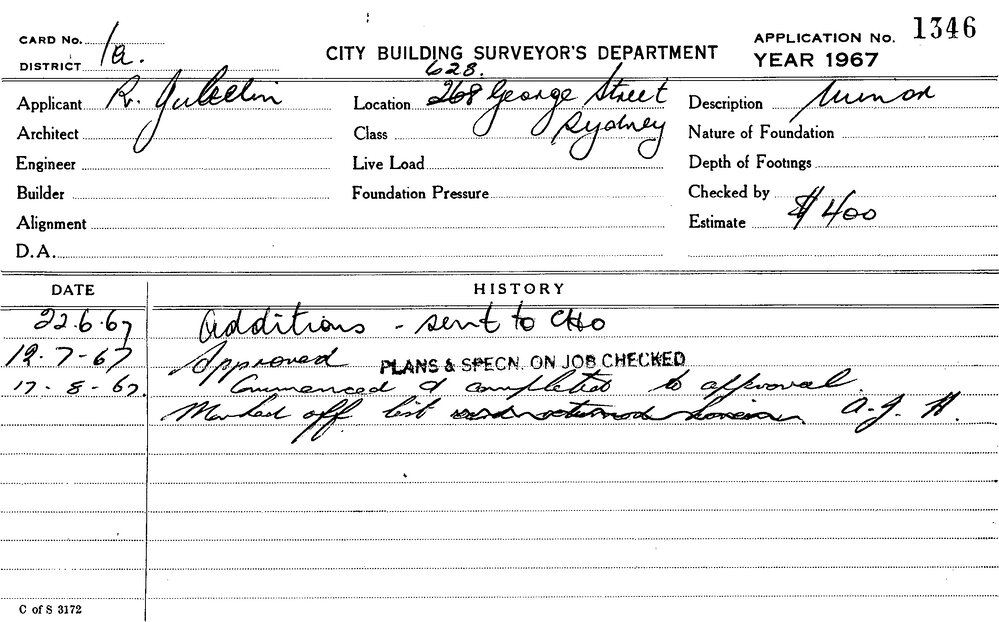 CARD No. 1a.
DISTRICT
CITY BUILDING SURVEYOR'S DEPARTMENT
APPLICATION No. 1346
YEAR 1967
Applicant R.
628.
Location 268 George Street
Sydney
Description Minor
Architect
Class
Nature of Foundation
Engineer
Live Load
Depth of Footings
Builder
Foundation Pressure
Checked by
Alignment
Estimate $400
D.A.
DATE HISTORY
22.6.67 Additions - sent to CHO
12-7-67 Approved PLANS & SPECN. ON JOB CHECKED
17-8-67. Commenced & completed to approval.
Marked off list A.J. H.
C of S 3172